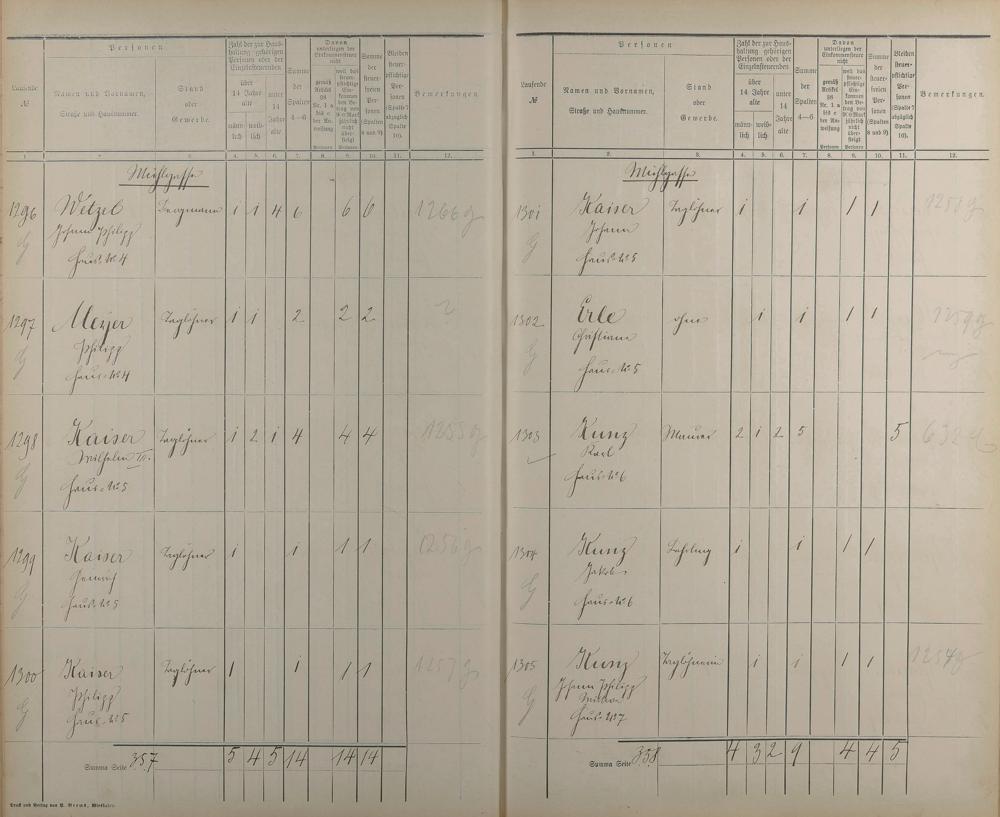 Laufende
№
Personen
Namen und Vornamen,
Straße und Hausnummer.
Stand
oder
Gewerbe.
Zahl der zur Haus-
haltung gehörigen
Personen oder der
Einzelnsteuernden
über
14 Jahre
alte
männ-
lich
weib-
lich
unter
14
Jahre
alte
Summe
der
Spalten
4—6
Davon
unterliegen der
Einkommensteuer
nicht
gemäß
Artikel
Nr. 1 a
bis c
der An-
weisung
Personen
weil das
steuer-
pflichtige
Ein-
kommen
den Be-
trag von
900 Mark
jährlich
nicht
über-
steigt
Personen
Summe
der
steuer-
freien
Per-
sonen
(Spalten
8 und 9)
Bleiben
steuer-
pflichtige
Per-
sonen
(Spalte 7
abzüglich
Spalte
10).
Bemerkungen.
1. 2. 3. 4. 5. 6. 7. 8. 9. 10. 11. 12.
Mühlgasse
1296 Wetzel Bergmann 1 1 4 6 6 6 1266 g
G Johann Philipp
Haus-Nr. 4
1297 Meyer Taglöhner 1 1 2 2 2 ?
G Philipp
Haus-Nr. 4
1298 Kaiser Taglöhner 1 2 1 4 4 4 1255 g
G Wilhelm III.
Haus-Nr. 5
1299 Kaiser Taglöhner 1 1 1 1 1256 g
G Heinrich
Haus-Nr. 5
1300 Kaiser Taglöhner 1 1 1 1 1257 g
G Philipp
Haus-Nr. 5
Summa Seite 357 5 4 5 14 14 14
Druck und Verlag von P. Plaum, Wiesbaden.
Laufende
№
Personen
Namen und Vornamen,
Straße und Hausnummer.
Stand
oder
Gewerbe.
Zahl der zur Haus-
haltung gehörigen
Personen oder der
Einzelnsteuernden
über
14 Jahre
alte
männ-
lich
weib-
lich
unter
14
Jahre
alte
Summe
der
Spalten
4—6
Davon
unterliegen der
Einkommensteuer
nicht
Summe
der
steuer-
freien
Per-
sonen
(Spalten
8 und 9)
Bleiben
steuer-
pflichtige
Per-
sonen
(Spalte 7
abzüglich
Spalte
10).
Bemerkungen.
1. 2. 3. 4. 5. 6. 7. 8. 9. 10. 11. 12.
Mühlgasse
1301 Kaiser Taglöhner 1 1 1 1
G Johann
Haus-Nr. 5
1302 Erle ohne 1 1 1 1 1259 g
G Christiane
Haus-Nr. 5
1303 Kunz Maurer 2 1 2 5 5 632
Karl
Haus-Nr. 6
1304 Kunz Lehrling 1 1 1 1
G Jakob
Haus-Nr. 6
1305 Kunz Taglöhnerin 1 1 1 1 1254 g
G Johann Philipp
Witwe
Haus-Nr. 7
Summa Seite 358 4 3 2 9 4 4 5